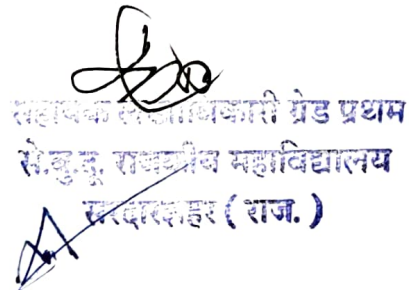 सहायक लेखाधिकारी ग्रेड प्रथम
से.बु.दू. राजकीय महाविद्यालय
सरदारशहर ( राज. )